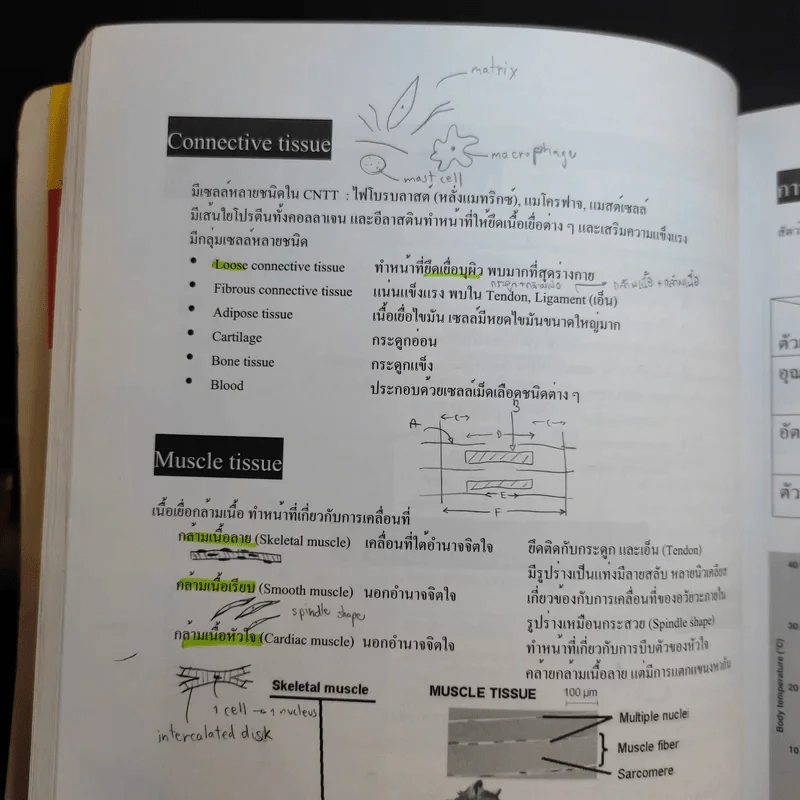 matrix
Connective tissue
macrophage
mast cell
มีเซลล์หลายชนิดใน CNTT : ไฟโบรบลาสต์ (หลั่งแมทริกซ์), แมโครฟาจ, แมสต์เซลล์
มีเส้นใยโปรตีนทั้งคอลลาเจน และอีลาสตินทำหน้าที่ให้ยึดเนื้อเยื่อต่าง ๆ และเสริมความแข็งแรง
มีกลุ่มเซลล์หลายชนิด
• Loose connective tissue ทำหน้าที่ยึดเยื่อบุผิว พบมากที่สุดร่างกาย
• Fibrous connective tissue แน่นแข็งแรง พบใน Tendon, Ligament (เอ็น)
• Adipose tissue เนื้อเยื่อไขมัน เซลล์มีหยดไขมันขนาดใหญ่มาก
• Cartilage กระดูกอ่อน
• Bone tissue กระดูกแข็ง
• Blood ประกอบด้วยเซลล์เม็ดเลือดชนิดต่าง ๆ
A C D B C
E
F
Muscle tissue
เนื้อเยื่อกล้ามเนื้อ ทำหน้าที่เกี่ยวกับการเคลื่อนที่
กล้ามเนื้อลาย (Skeletal muscle) เคลื่อนที่ใต้อำนาจจิตใจ ยึดติดกับกระดูก และเอ็น (Tendon)
มีรูปร่างเป็นแท่งมีลายสลับ หลายนิวเคลียส
กล้ามเนื้อเรียบ (Smooth muscle) นอกอำนาจจิตใจ เกี่ยวข้องกับการเคลื่อนที่ของอวัยวะภายใน
spindle shape รูปร่างเหมือนกระสวย (Spindle shape)
กล้ามเนื้อหัวใจ (Cardiac muscle) นอกอำนาจจิตใจ ทำหน้าที่เกี่ยวกับการบีบตัวของหัวใจ
คล้ายกล้ามเนื้อลาย แต่มีการแตกแขนง
1 cell → 1 nucleus
intercalated disk
Skeletal muscle
MUSCLE TISSUE
100 µm
Multiple nuclei
Muscle fiber
Sarcomere
อุณ
อัต
ตัว
40
30
20
10
Body temperature (°C)